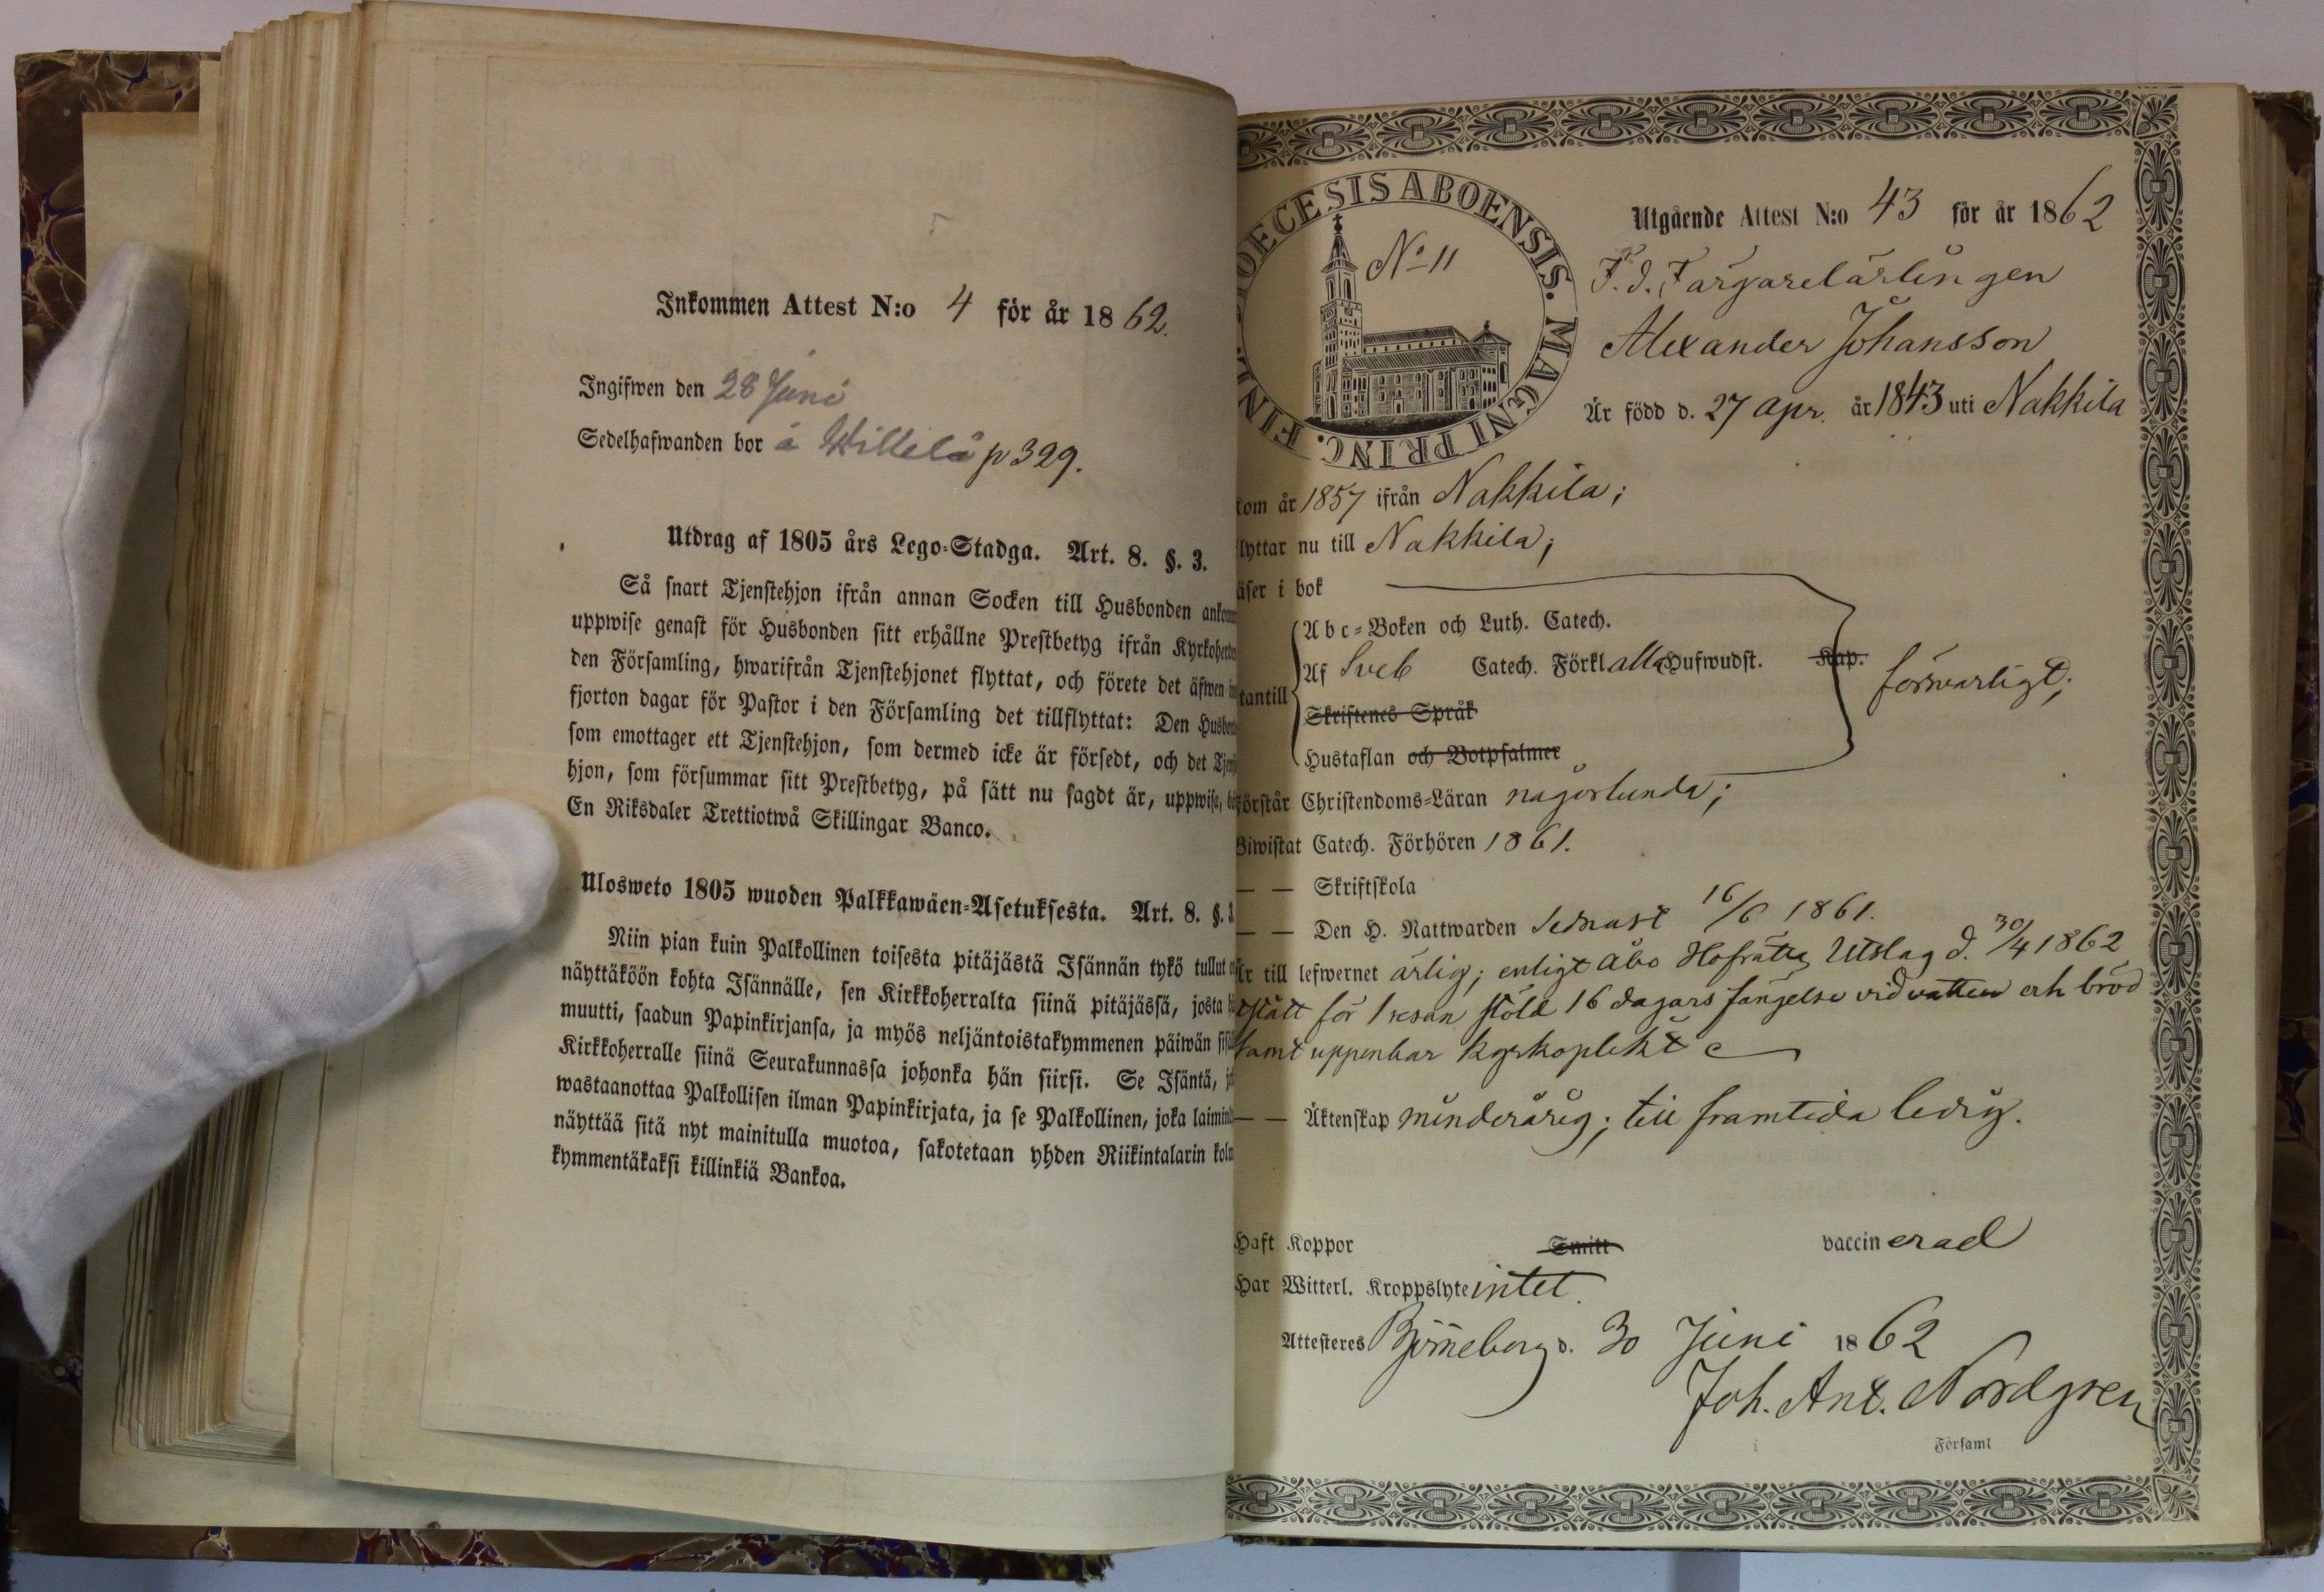 Inkommen Attest N:o 4 för år 1862.
Ingifwen den 28 Juni
Sedelhafwanden bor å Willilä p 329.
Utdrag af 1805 års Lego-Stadga. Art. 8. §. 3.
Så snart Tjenstehjon ifrån annan Socken till Husbonden ankom
uppwise genast för Husbonden sitt erhållne Prestbetyg ifrån Kyrkoherde
den Församling, hwarifrån Tjenstehjonet flyttat, och förete det äfwen
fjorton dagar för Pastor i den Församling det tillflyttat: Den Husbon
som emottager ett Tjenstehjon, som dermed icke är försedt, och det Tjen
hjon, som försummar sitt Prestbetyg, på sätt nu sagdt är, uppwisa,
En Riksdaler Trettiotwå Skillingar Banco.
Ulosweto 1805 wuoden Palkkawäen-Asetuksesta. Art. 8. §. 3
Niin pian kuin Palkollinen toisesta pitäjästä Isännän tykö tullut
näyttäköön kohta Isännälle, sen Kirkkoherralta siinä pitäjässä, josta
muutti, saadun Papinkirjansa, ja myös neljäntoistakymmenen päiwän sis
Kirkkoherralle siinä Seurakunnassa johonka hän siirsi. Se Isäntä, jo
wastaanottaa Palkollisen ilman Papinkirjata, ja se Palkollinen, joka laimin
näyttää sitä nyt mainitulla muotoa, sakotetaan yhden Riikintalarin kolm
kymmentäkaksi killinkiä Bankoa.
OECESIS ABOENSIS. MAGNI PRINC. FINL.
No 11
Utgående Attest N:o 43 för år 1862
F. d. Färgarelärlingen
Alexander Johansson
Är född d. 27 Apr. år 1843 uti Nakkila
kom år 1857 ifrån Nakkila;
flyttar nu till Nakkila;
äser i bok
Abc=Boken och Luth. Catech.
Af Sveb Catech. Förkl alla Hufwudst. Kap.
förswarligt;
tantill
Skriftenes Språk
Hustaflan och Botpsalmer
Förstår Christendoms=Läran någorlunda;
Biwistat Catech. Förhören 1861.
— — Skriftskola
— — Den H. Nattwarden senast 16/6 1861.
Är till lefwernet ärlig; enligt Åbo Hofrätts Utslag d. 30/4 1862
för 1 resan stöld 16 dagars fängelse vid vatten och bröd
samt uppenbar kyrkoplikt
— — Äktenskap minderårig; till framtida ledig.
Haft Koppor Smitt vaccinerad
Har Witterl. Kroppslyte intet.
Attesteres Björneborg d. 30 Juni 1862
Joh. Ant. Nordgren
Församl